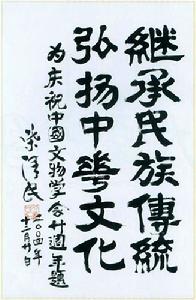 繼承民族傳統
弘扬中華文化
为庆祝中國文物学会廿週年题
柴泽民
二〇〇四年
十二月廿日